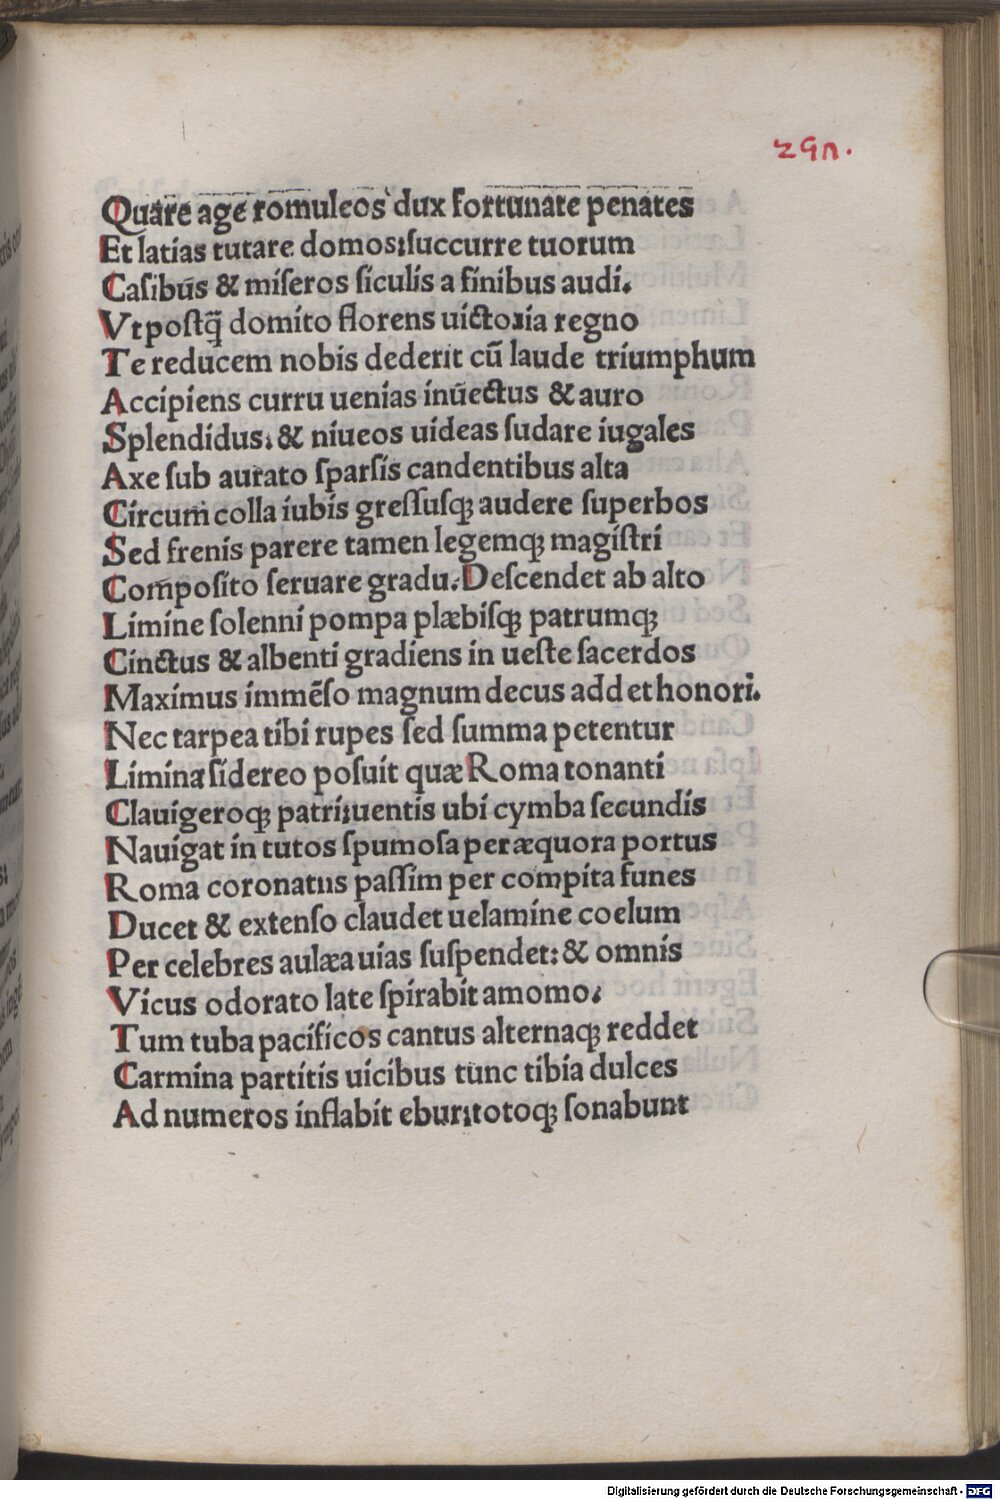 291.
Quare age romuleos dux fortunate penates
Et latias tutare domos:succurre tuorum
Casibus & miseros siculis a finibus audi.
Vt postq̃ domito florens uictoria regno
Te reducem nobis dederit cū laude triumphum
Accipiens curru uenias inuectus & auro
Splendidus: & niueos uideas sudare iugales
Axe sub aurato sparsis candentibus alta
Circum colla iubis gressusq; audere superbos
Sed frenis parere tamen legemq; magistri
Composito seruare gradu. Descendet ab alto
Limine solenni pompa plæbisq; patrumq;
Cinctus & albenti gradiens in ueste sacerdos
Maximus immēso magnum decus addet honori.
Nec tarpea tibi rupes sed summa petentur
Limina sidereo posuit quæ Roma tonanti
Clauigeroq; patri:uentis ubi cymba secundis
Nauigat in tutos spumosa per æquora portus
Roma coronatus passim per compita funes
Ducet & extenso claudet uelamine coelum
Per celebres aulæa uias suspendet: & omnis
Vicus odorato late spirabit amomo.
Tum tuba pacificos cantus alternaq; reddet
Carmina partitis uicibus tunc tibia dulces
Ad numeros inflabit ebur:totoq; sonabunt
Digitalisierung gefördert durch die Deutsche Forschungsgemeinschaft - DFG